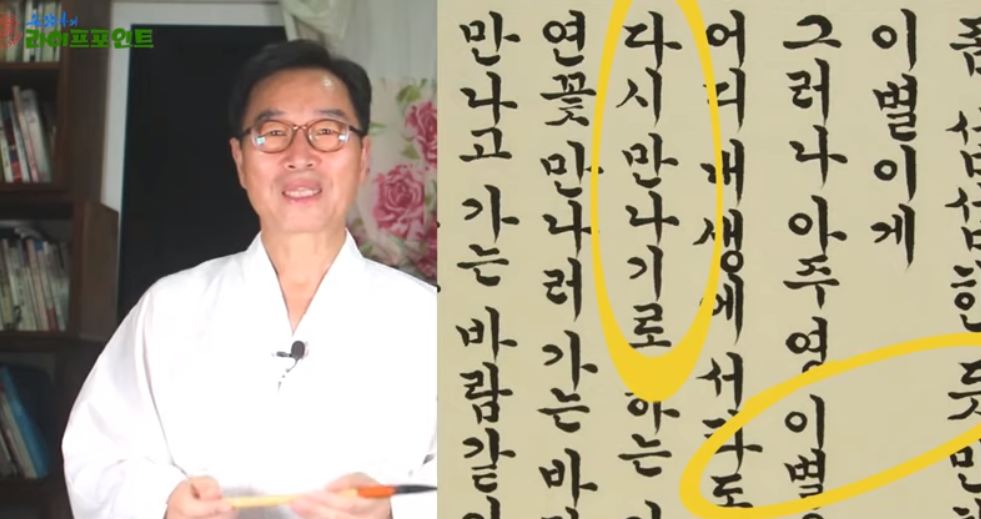 라이프포인트
좀 섭섭한 듯만
이별이게
그러나 아주 영 이별
어디 내생에서라도
다시 만나기로 하는
연꽃 만나러 가는 바
만나고 가는 바람같